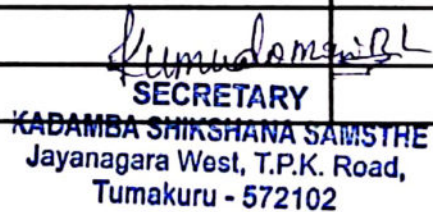 Kumudamani B L
SECRETARY
KADAMBA SHIKSHANA SAMSTHE
Jayanagara West, T.P.K. Road,
Tumakuru - 572102